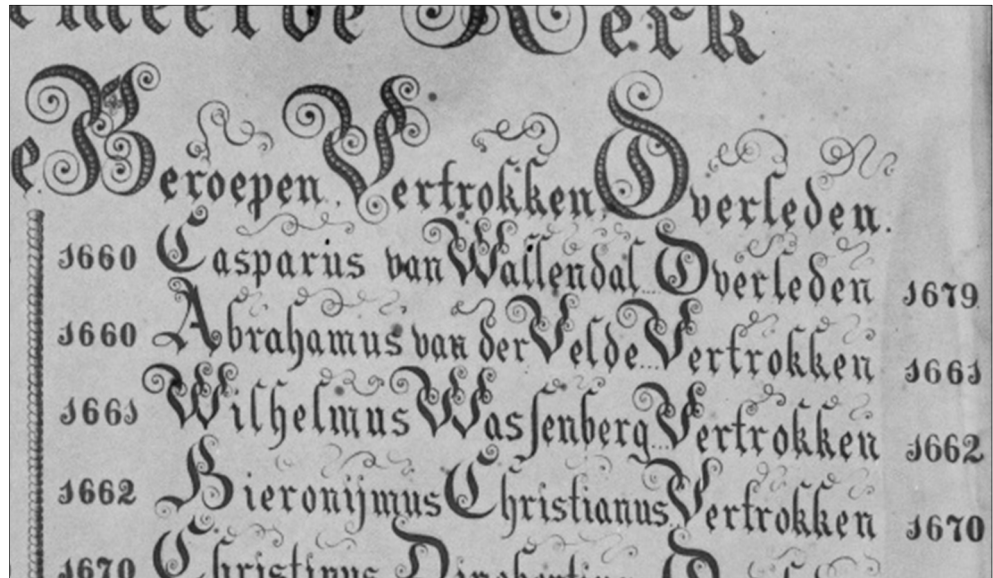 Kerk
Beroepen. Vertrokken, Overleden.
1660 Casparus van Wallendal... Overleden 1679
1660 Abrahamus van der Velde... Vertrokken 1661
1661 Wilhelmus Wassenberg... Vertrokken 1662
1662 Hieronijmus Christianus Vertrokken 1670
1670 Christinus